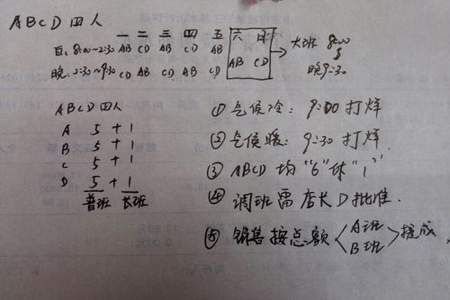 ABCD四人
一 二 三 四 五 六 日
白: 8:00~2:30 AB CD AB CD AB
晚: 2:30~9:30 CD AB CD AB CD
AB CD
→大班 8:00
晚9:30
ABCD四人
A 5 + 1
B 5 + 1
C 5 + 1
D 5 + 1
普班 长班
① 气候冷: 9:00打烊
② 气候暖: 9:30打烊
③ ABCD均"6"休"1"
④ 调班需店长D批准.
⑤ 销售按总额 A班 B班 提成.